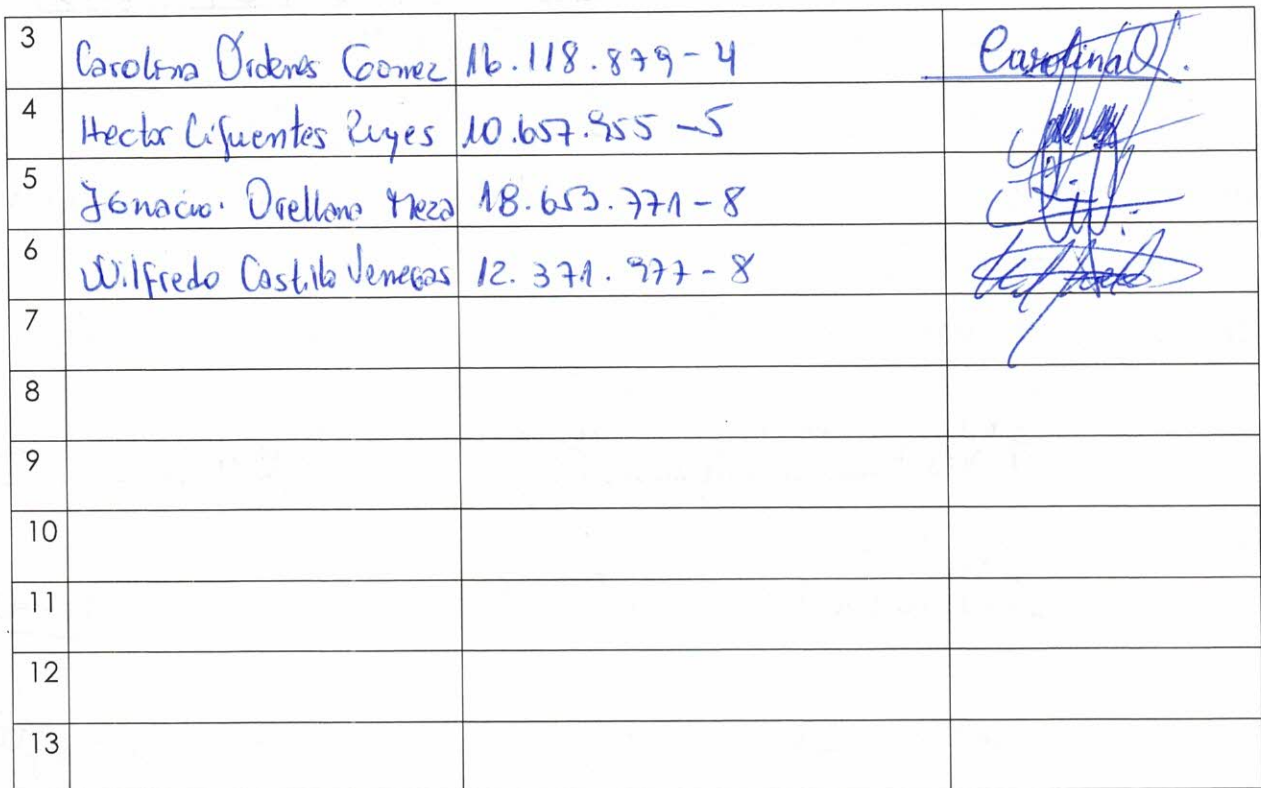 3 Carolina Ordenes Gomez 16.118.879-4 CarolinaO.
4 Hector Cifuentes Reyes 10.657.955-5
5 Ignacio. Orellana Meza 18.653.771-8
6 Wilfredo Castillo Venegas 12.371.977-8
7
8
9
10
11
12
13